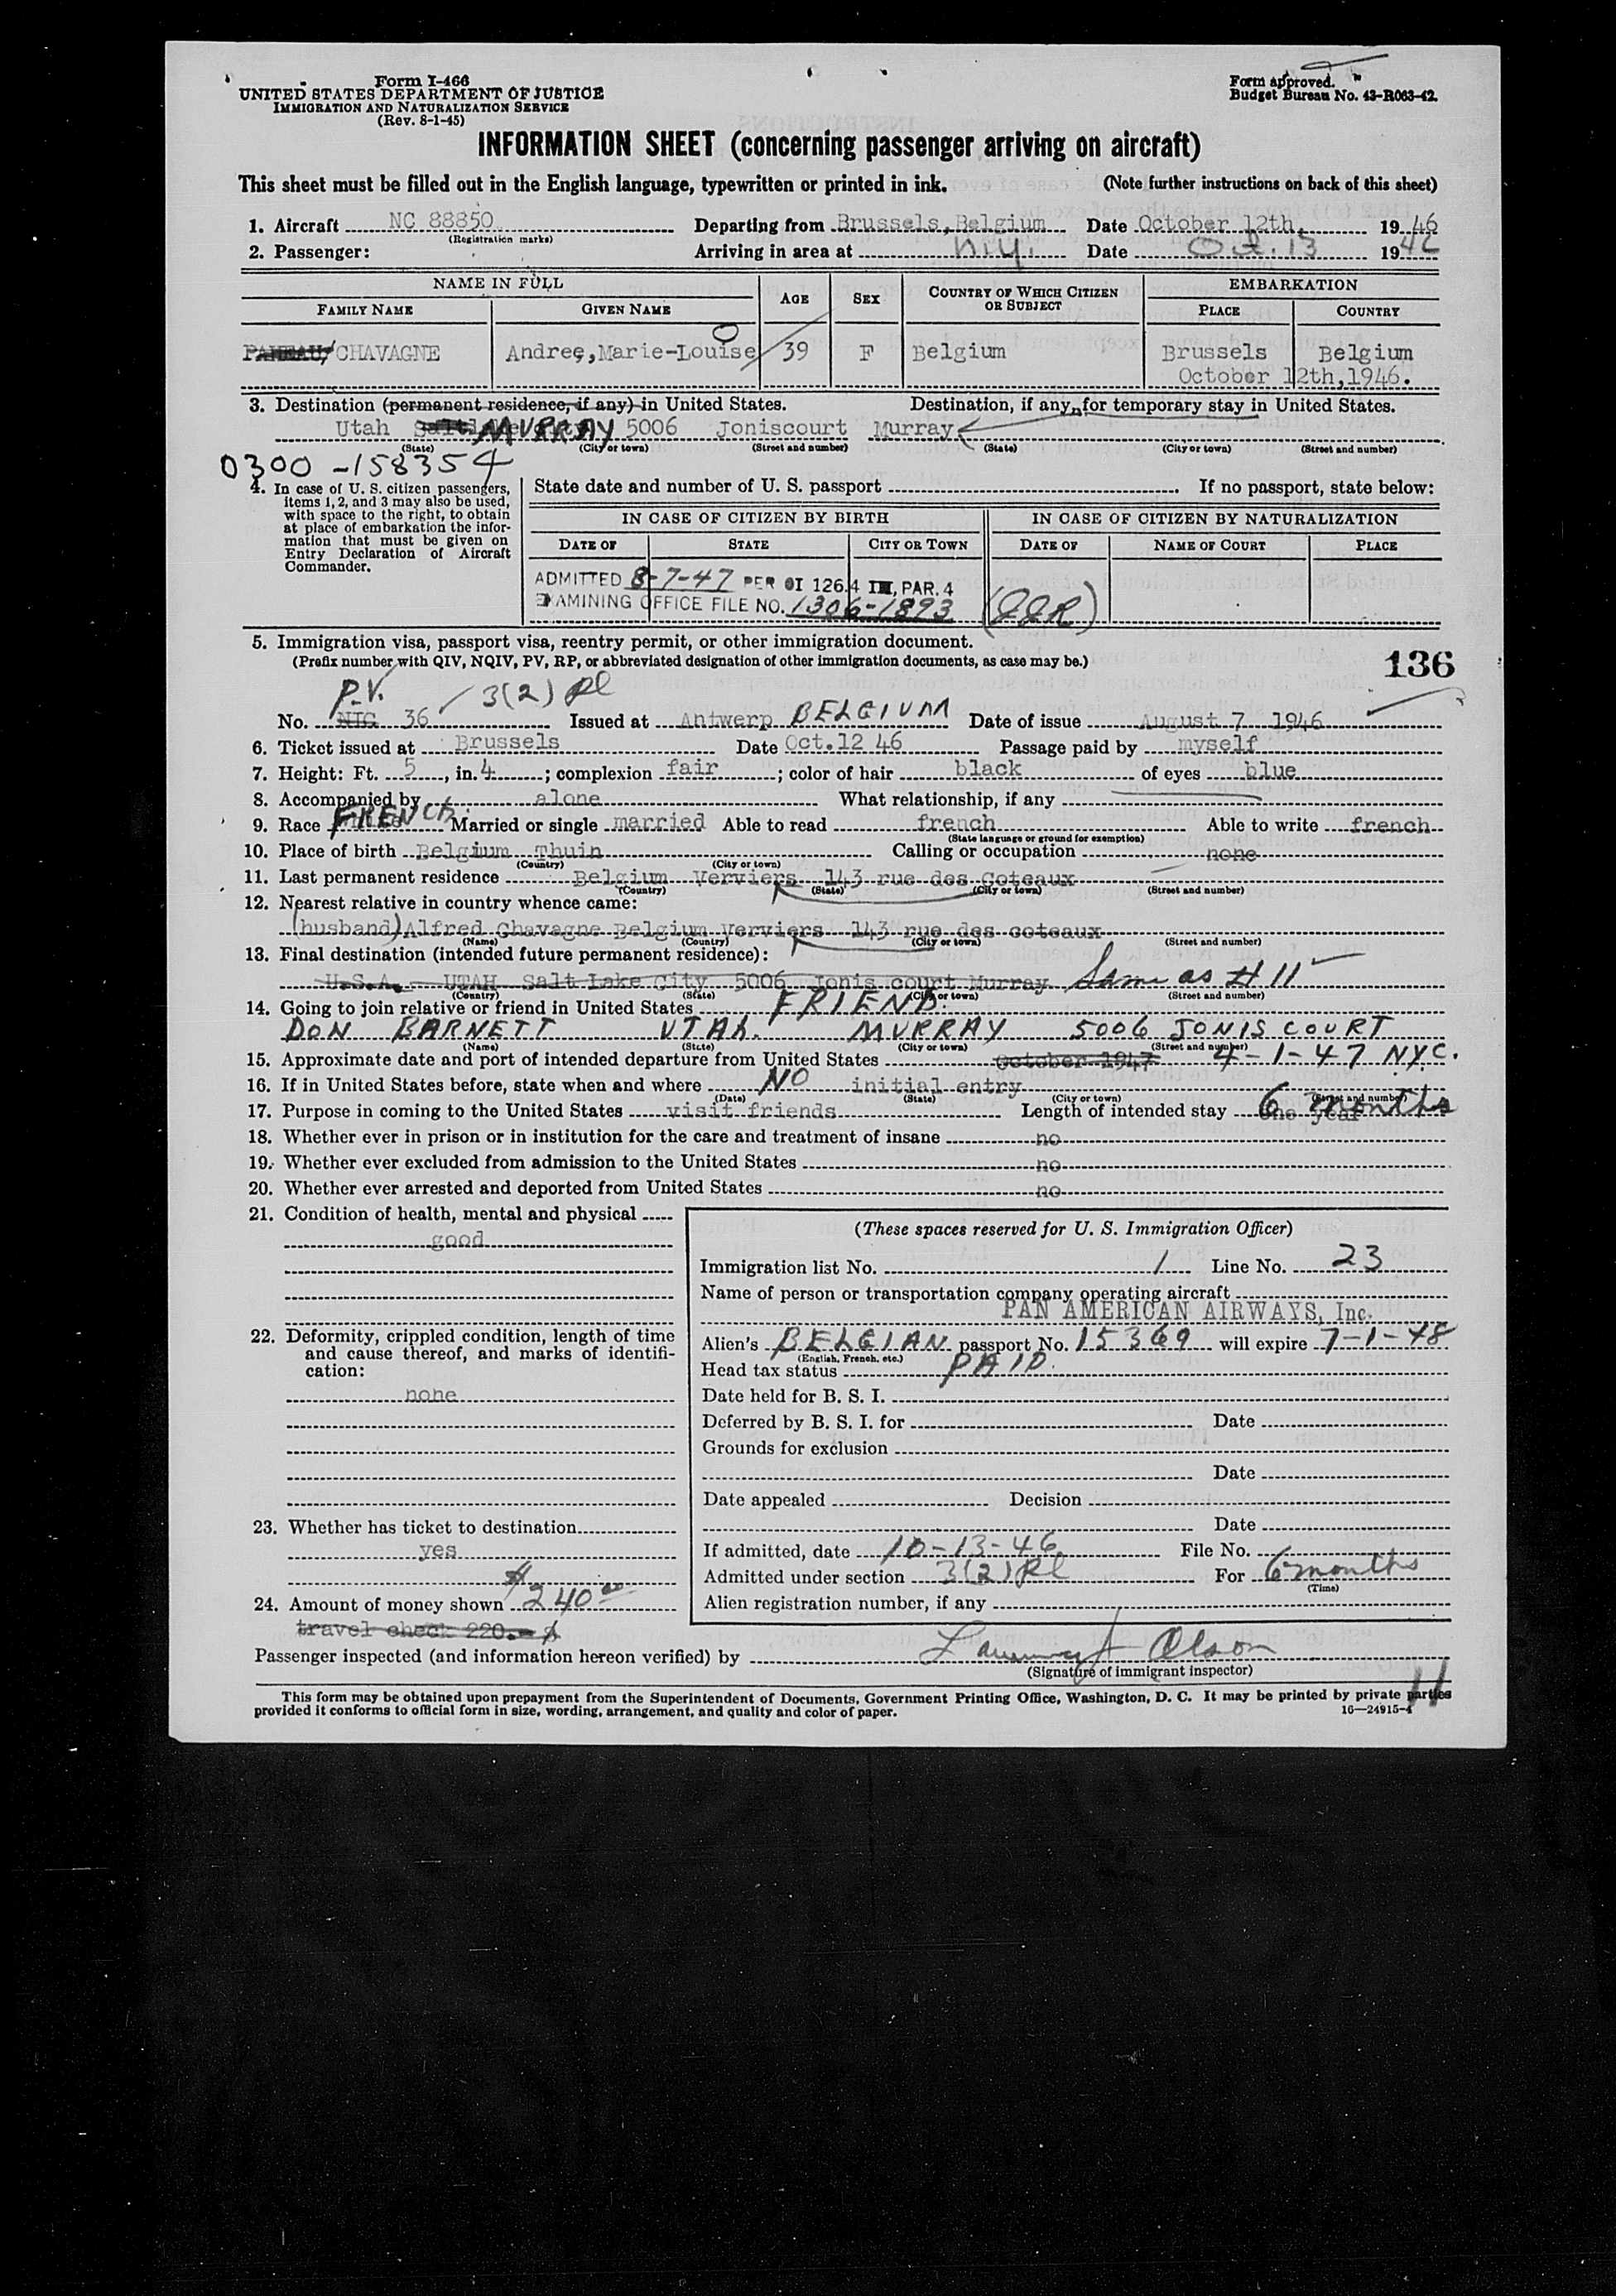 Form I-466
UNITED STATES DEPARTMENT OF JUSTICE
IMMIGRATION AND NATURALIZATION SERVICE
(Rev. 8-1-45)
Form approved.
Budget Bureau No. 43-R063-42.
INFORMATION SHEET (concerning passenger arriving on aircraft)
This sheet must be filled out in the English language, typewritten or printed in ink. (Note further instructions on back of this sheet)
1. Aircraft NC 88850 Departing from Brussels, Belgium Date October 12th, 1946
(Registration marks)
2. Passenger: Arriving in area at N.Y. Date Oct. 13 1946
NAME IN FULL AGE SEX COUNTRY OF WHICH CITIZEN OR SUBJECT EMBARKATION
FAMILY NAME GIVEN NAME PLACE COUNTRY
CHAVAGNE Andree, Marie-Louise 39 F Belgium Brussels Belgium
October 12th, 1946.
3. Destination (permanent residence, if any) in United States. Destination, if any, for temporary stay in United States.
Utah MURRAY 5006 Joniscourt Murray
(State) (City or town) (Street and number) (State) (City or town) (Street and number)
0300-158354
4. In case of U. S. citizen passengers, items 1, 2, and 3 may also be used, with space to the right, to obtain at place of embarkation the information that must be given on Entry Declaration of Aircraft Commander.
State date and number of U. S. passport If no passport, state below:
IN CASE OF CITIZEN BY BIRTH IN CASE OF CITIZEN BY NATURALIZATION
DATE OF STATE CITY OR TOWN DATE OF NAME OF COURT PLACE
ADMITTED 8-7-47 PER OI 126.4 III, PAR. 4
EXAMINING OFFICE FILE NO. 1306-1893
5. Immigration visa, passport visa, reentry permit, or other immigration document.
(Prefix number with QIV, NQIV, PV, RP, or abbreviated designation of other immigration documents, as case may be.)
136
P.V. 3(2) Pl
No. 36 Issued at Antwerp BELGIUM Date of issue August 7 1946
6. Ticket issued at Brussels Date Oct. 12 46 Passage paid by myself
7. Height: Ft. 5, in. 4; complexion fair; color of hair black of eyes blue
8. Accompanied by alone What relationship, if any
9. Race FRENCH Married or single married Able to read french Able to write french
(State language or ground for exemption)
10. Place of birth Belgium Thuin Calling or occupation none
(Country) (City or town)
11. Last permanent residence Belgium Verviers 143 rue des Coteaux
(Country) (State) (City or town) (Street and number)
12. Nearest relative in country whence came:
(husband) Alfred Chavagne Belgium Verviers 143 rue des coteaux
(Name) (Country) (City or town) (Street and number)
13. Final destination (intended future permanent residence):
U.S.A. UTAH Salt Lake City 5006 Jonis court Murray Same as # 11
(Country) (State) (City or town) (Street and number)
14. Going to join relative or friend in United States FRIEND.
DON BARNETT UTAH. MURRAY 5006 JONIS COURT
(Name) (State) (City or town) (Street and number)
15. Approximate date and port of intended departure from United States October 1947 4-1-47 N.Y.C.
16. If in United States before, state when and where NO initial entry
(Date) (State) (City or town) (Street and number)
17. Purpose in coming to the United States visit friends Length of intended stay one year 6 months
18. Whether ever in prison or in institution for the care and treatment of insane no
19. Whether ever excluded from admission to the United States no
20. Whether ever arrested and deported from United States no
21. Condition of health, mental and physical
good
22. Deformity, crippled condition, length of time and cause thereof, and marks of identification:
none
23. Whether has ticket to destination
yes
24. Amount of money shown $240.00
travel check 220.- $
(These spaces reserved for U. S. Immigration Officer)
Immigration list No. 1 Line No. 23
Name of person or transportation company operating aircraft
PAN AMERICAN AIRWAYS, Inc.
Alien's BELGIAN passport No. 15369 will expire 7-1-48
(English, French, etc.)
Head tax status PAID.
Date held for B. S. I.
Deferred by B. S. I. for Date
Grounds for exclusion
Date
Date appealed Decision
Date
If admitted, date 10-13-46 File No.
Admitted under section 3(2) Pl For 6 months
(Time)
Alien registration number, if any
Passenger inspected (and information hereon verified) by Olson
(Signature of immigrant inspector)
11
This form may be obtained upon prepayment from the Superintendent of Documents, Government Printing Office, Washington, D. C. It may be printed by private parties
provided it conforms to official form in size, wording, arrangement, and quality and color of paper. 16—24915-4